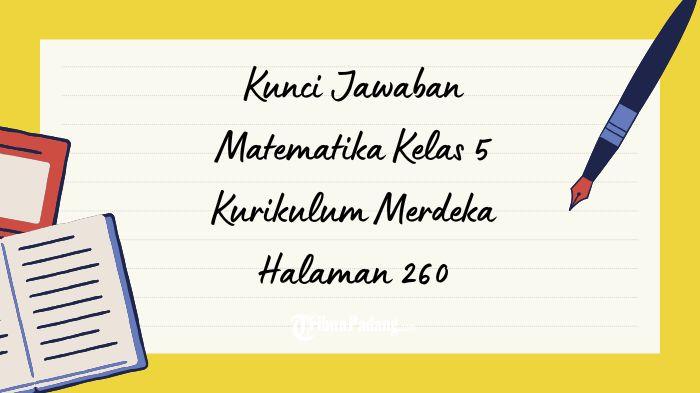 Kunci Jawaban
Matematika Kelas 5
Kurikulum Merdeka
Halaman 260
TribunPadang.com